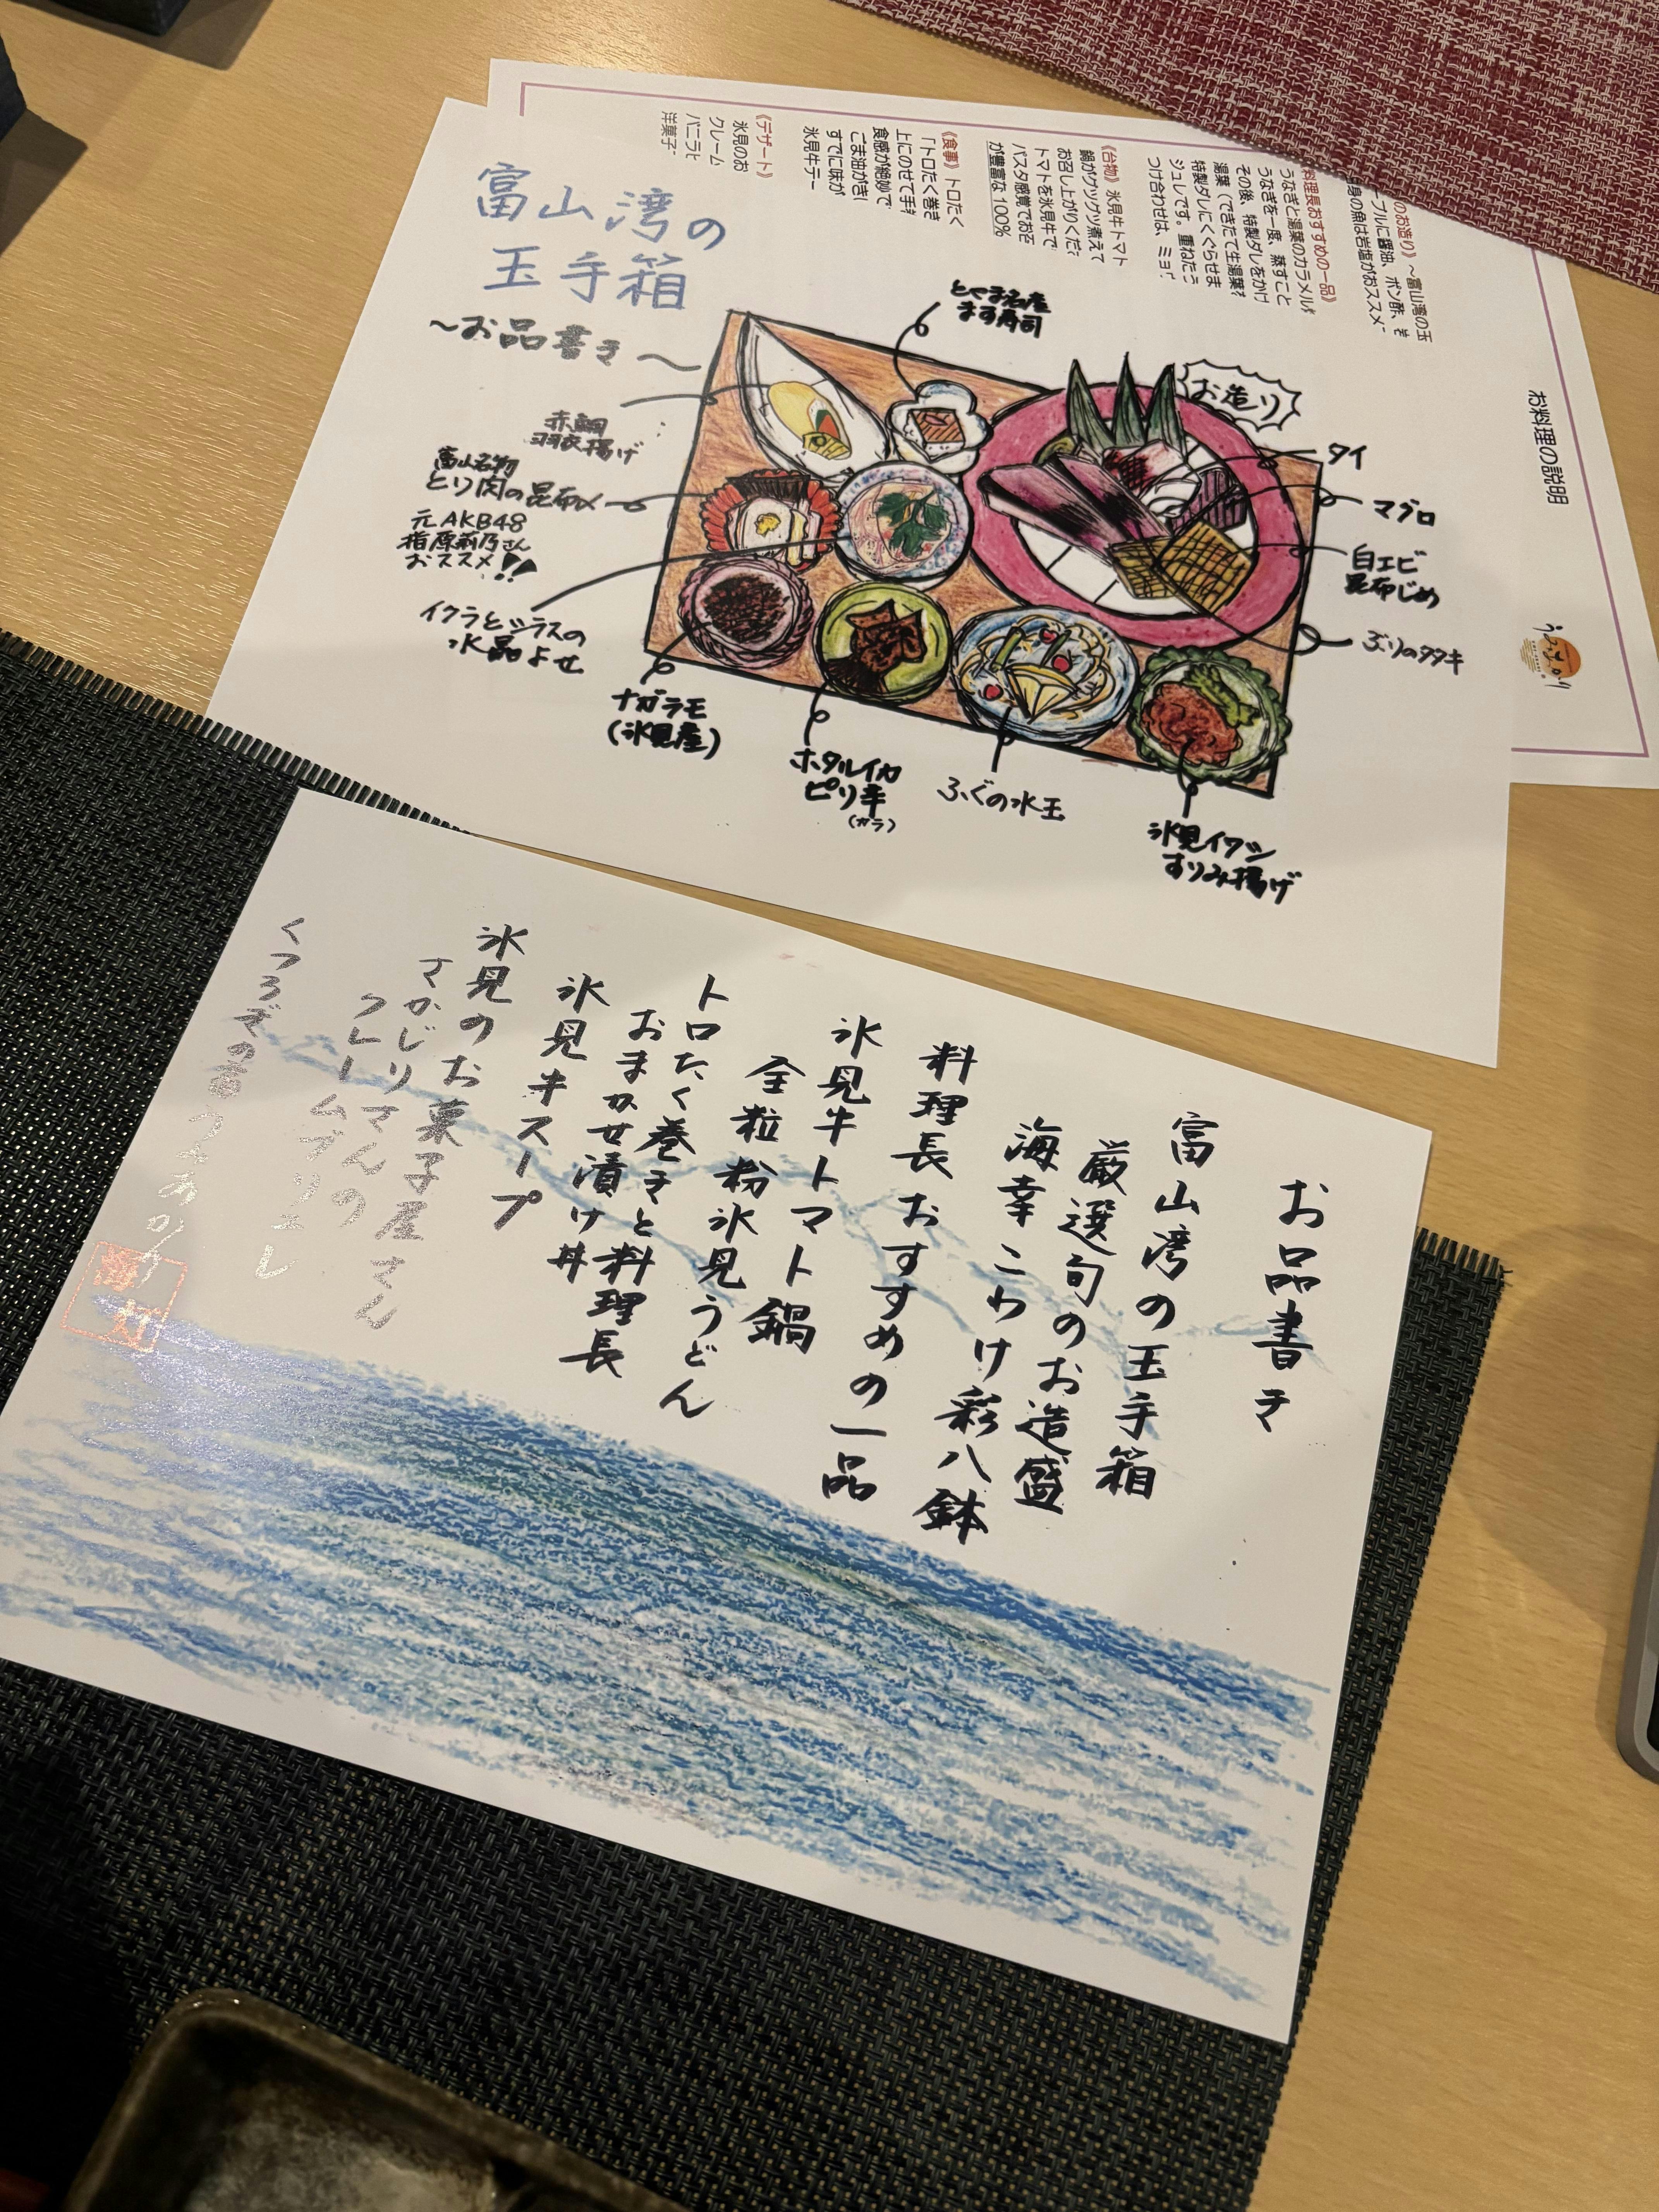 富山湾の
玉手箱
～お品書き～
とやま名産
ます寿司
お造り
タイ
マグロ
白エビ
昆布じめ
ぶりのタタキ
赤鯛
羽衣揚げ
富山名物
とり肉の昆布〆
元AKB48
指原莉乃さん
おススメ!!
イクラとシラスの
水晶よせ
ナガラモ
(氷見産)
ホタルイカ
ピリ辛
(カラ)
ふぐの水玉
氷見イワシ
すりみ揚げ
お料理の説明
のお造り》～富山湾の玉
ーブルに醤油、ポン酢、そ
身の魚は岩塩がおススメ
料理長おすすめの一品》
うなぎと湯葉のカラメル
うなぎを一度、蒸すこと
その後、特製ダレをかけ
湯葉(できたて生湯葉
特製ダレにくぐらせま
ジュレです。重ねたこ
つけ合わせは、ミョ
《台物》氷見牛トマト
鍋がグツグツ煮えて
お召し上がりくだ
トマトを氷見牛で
パスタ感覚でお召
が豊富な100%
《食事》トロたく
「トロたく巻き
上にのせて手
食感が絶妙で
ごま油がき
すでに味が
氷見牛テー
《デザート》
氷見のお
クレーム
バニラビ
洋菓子
お品書き
富山湾の玉手箱
厳選旬のお造盛
海幸こわけ彩八鉢
料理長おすすめの一品
氷見牛トマト鍋
全粒粉氷見うどん
トロたく巻きと料理長
おまかせ漬け丼
氷見牛スープ
氷見のお菓子屋さん
さかじりさんの
クレームブリュレ
くつろぎの宿うみあかり